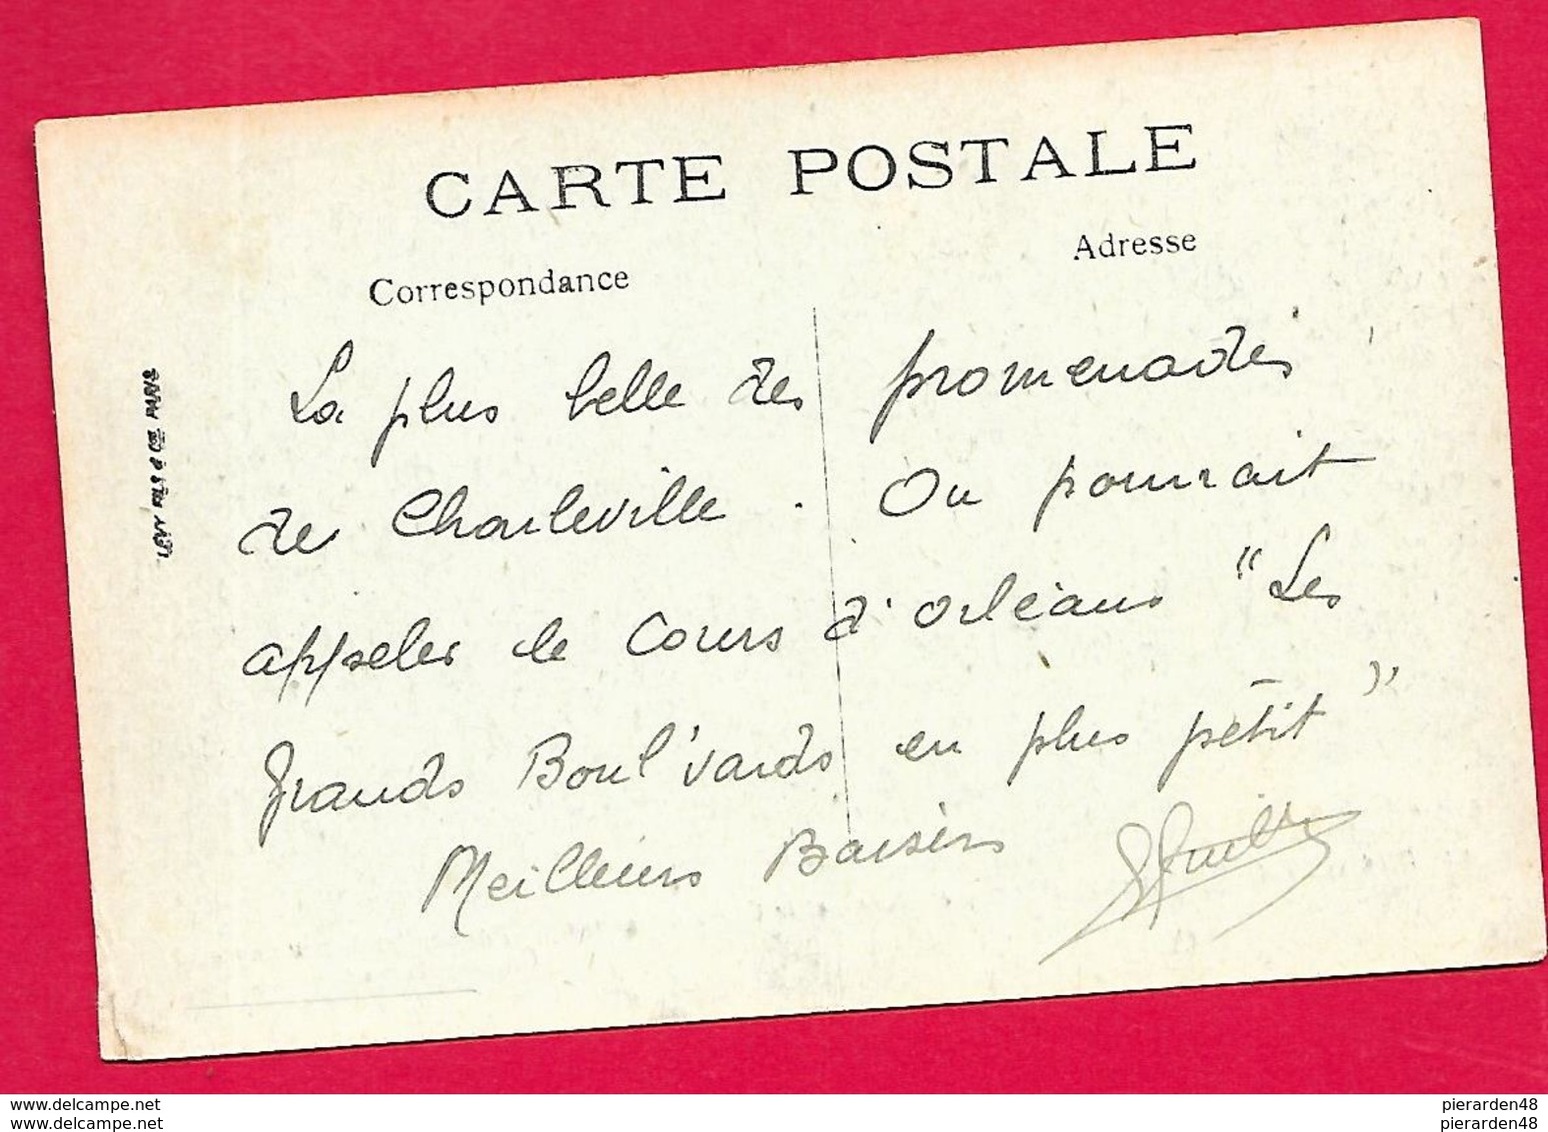 CARTE POSTALE
Correspondance
Adresse
LÉVY FILS & CIE PARIS
La plus belle des promenades
de Charleville. On pourrait
appeler le Cours d'orléans "Les
grands Boul'vards en plus petit"
Meilleurs Baisers
www.delcampe.net
pierarden48
www.delcampe.net
pierarden48